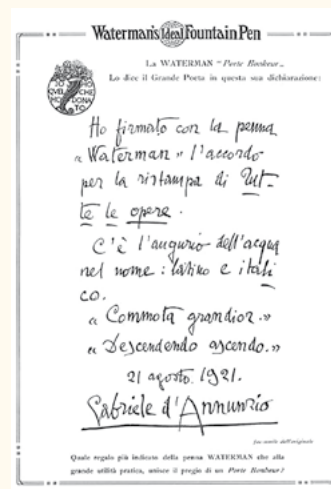 Waterman's Ideal Fountain Pen
La WATERMAN "Porte Bonheur"
Lo dice il Grande Poeta in questa sua dichiarazione:
IO HO
QUEL CHE
HO DONA
TO
Ho firmato con la penna
« Waterman » l'accordo
per la ristampa di Tut-
te le opere.
C'è l'augurio dell'acqua
nel nome: latino e itali
co.
« Commota grandior. »
« Descendendo ascendo. »
21 agosto. 1921.
Gabriele d'Annunzio
fac-simile dell'originale
Quale regalo più indicato della penna WATERMAN che alla
grande utilità pratica, unisce il pregio di un Porte Bonheur?